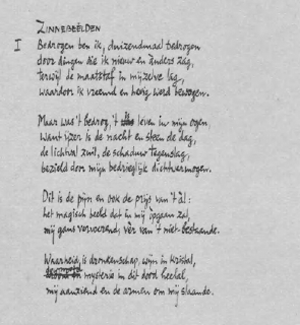 ZINNEBEELDEN
I Bedrogen ben ik, duizendmaal bedrogen
door dingen die ik nieuw en anders zag,
terwijl de maatstaf in mijzelve lag,
waardoor ik vreemd en hevig werd bewogen.
Maar was 't bedrog, 't leven in mijn ogen
Want ijzer is de nacht en steen de dag,
de lichtval zwelt, de schaduw tegenslag,
bezield door mijn bedrieglijk dichtvermogen.
Dit is de pijn en ook de prijs van 't àl:
het magisch beeld dat in mij opgaan zal,
mij gans vervoerend, vèr van 't niet-bestaande.
Waarheid is dronkenschap, wijn in kristal,
mysterie in dit dood heelal,
mij aanziend en de armen om mij slaande.